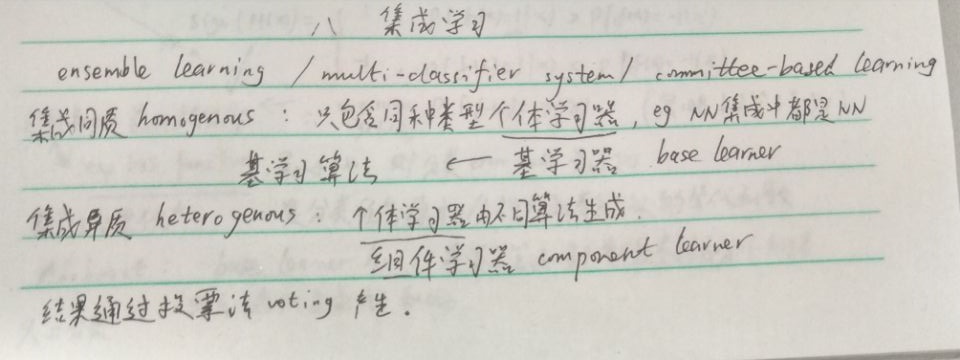 八 集成学习
ensemble learning / multi-classifier system / committee-based learning
集成同质 homogenous : 只包含同种类型个体学习器, eg NN集成中都是NN
基学习算法 ← 基学习器 base learner
集成异质 heterogenous : 个体学习器由不同算法生成.
组件学习器 component learner
结果通过投票法 voting 产生.